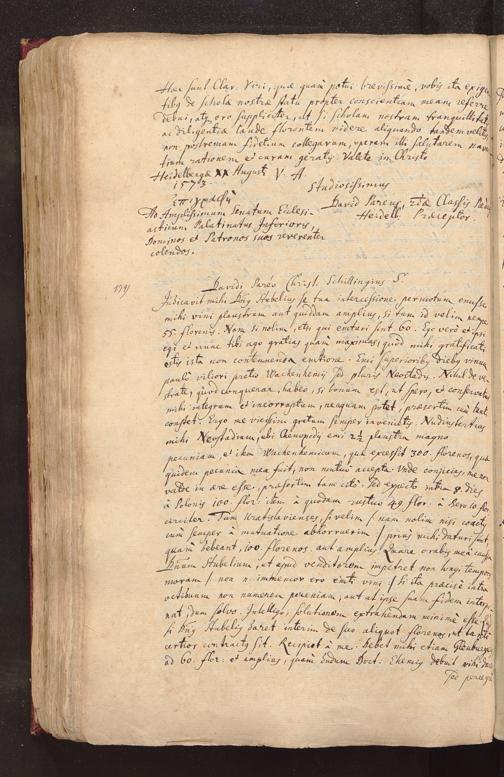 Hæc sunt Clar. Viri, quæ quàm potui brevissimè, vobis ita exigen-
tibus de scholæ nostræ statu propter conscientiam meam referre
debui, atq oro suppliciter, ut si scholam nostram tranquillitatis
ac diligentiæ laude florentem videre aliquando tandem velitis,
non postremam fidelium collegarum, operam illi salutarem navan-
tium rationem et curam geratis. Valete in Christo
Heidelbergæ XX Augusti V. A.
1573.
Studiosissimus
David Pareus, Classis Pæd.
Heidelb. Præceptor.
ἐπιγραφὴ
Ad Amplissimum Senatum Ecclesi-
asticum Palatinatus Inferioris
Dominos et Patronos suos reverenter
colendos.
Davidi Paréo Christ. Schillingius S.
Indicavit mihi Stubelius se tua intercessione permotum emisse
mihi vini plaustrum aut quiddam amplius, si tum id velim nempe
55 florenis. Nam si nolim, etsi qui emturi sint 60. Ego verò et ipsi
egi et nunc tibi ago gratias quàm maximas, quod mihi gratificati
estis ista non contemnenda emtione. Emi superioribus diebus vinum
paulò viliori pretio Wachenhemij sed pluris Neostadij. Nihil de ve-
strate, quod conquerar, habeo, si bonum est, ut spero, et conservatum
mihi integrum et incorruptum, nequam potest præsertim cùm
constet. Ergo me vicissim gratum semper invenietis. Nudiustertius
mihi Neustadinum, ubi emi 2½ plaustra magno
pecuniam, et item Wachenhemicum, quæ excessit 300. florenos, quæ
quidem pecunia mea fuit, non mutuò accepta. Unde conjicias me non
valde in ære esse, præsertim tam citò. Sed expecto intra 8. dies
à Polonis 100. flor. item à quodam rustico 49 flor. à 10 flor
circiter. Tum Wratislavienses, si velim (nam nolim nisi coactus
cùm semper à mutuatione abhorruerim) prius mihi daturi sunt,
quàm debeant, 100. florenos aut ampliùs. Quare orabis meâ causâ
Stubelium, ut apud venditorem impetret non longi temporis
moram (non n. immemor ero emti vini) si ita præcisè intra
octiduum non numerem pecuniam, aut ut ipse suam fidem interpo-
nat, dum solvo. Intelligo, solutionem extrahendam minimè esse.
Si Stubelius daret interim de suo aliquot florenos, ut
certior contractus sit. Recipiet à me. Debet mihi etiam
ad 60. flor. et ampliùs, quàm dudum Doct. Ehemius debuit mihi
sed